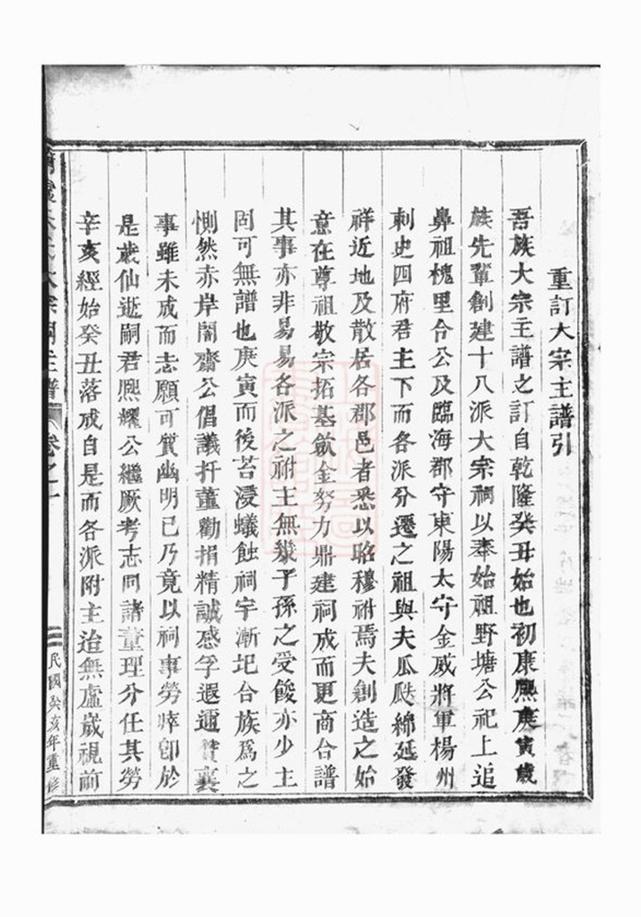 重訂大宗主譜引
吾族大宗主譜之訂自乾隆癸丑始也初康熙庚寅歲
族先輩創建十八派大宗祠以奉始祖野塘公祀上追
鼻祖槐里令公及臨海郡守東陽太守金威將軍楊州
刺史四府君主下而各派分遷之祖與夫瓜瓞綿延發
祥近地及散居各郡邑者悉以昭穆祔焉夫創造之始
意在尊祖敬宗拓基斂金努力鼎建祠成而更商合譜
其事亦非易易各派之祔主無幾子孫之受餕亦少主
固可無譜也庚寅而後苔浸蟻蝕祠宇漸圮合族為之
惻然赤岸闇齋公倡議扦董勸捐精誠感孚遐邇贊襄
事雖未成而志願可質幽明已乃竟以祠事勞瘁卽於
是歲仙逝嗣君熙耀公繼厥考志同諸董理分任其勞
辛亥經始癸丑落成自是而各派附主迨無虛歲視前
大宗祠主譜
卷之一
民國癸亥年重修